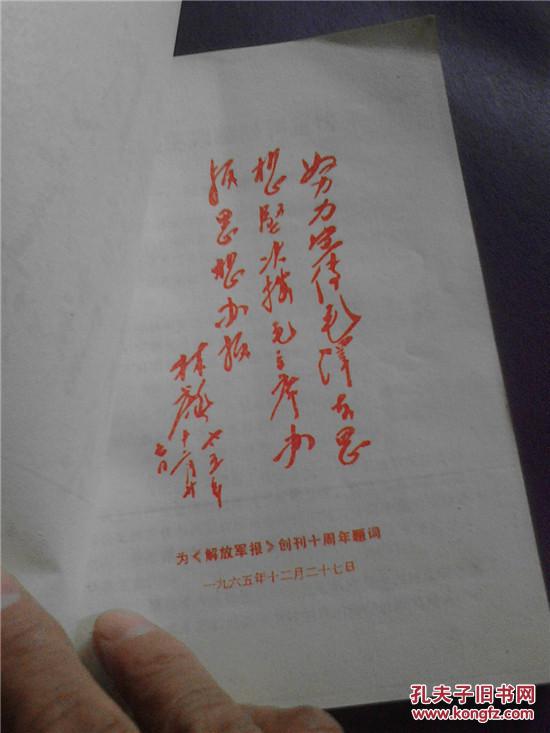 努力宣傳毛泽东思
想堅决按毛主席办
报思想办报
林彪
六五年
十二月廿
七日
为《解放军报》创刊十周年题词
一九六五年十二月二十七日
孔夫子旧书网
www.kongfz.com